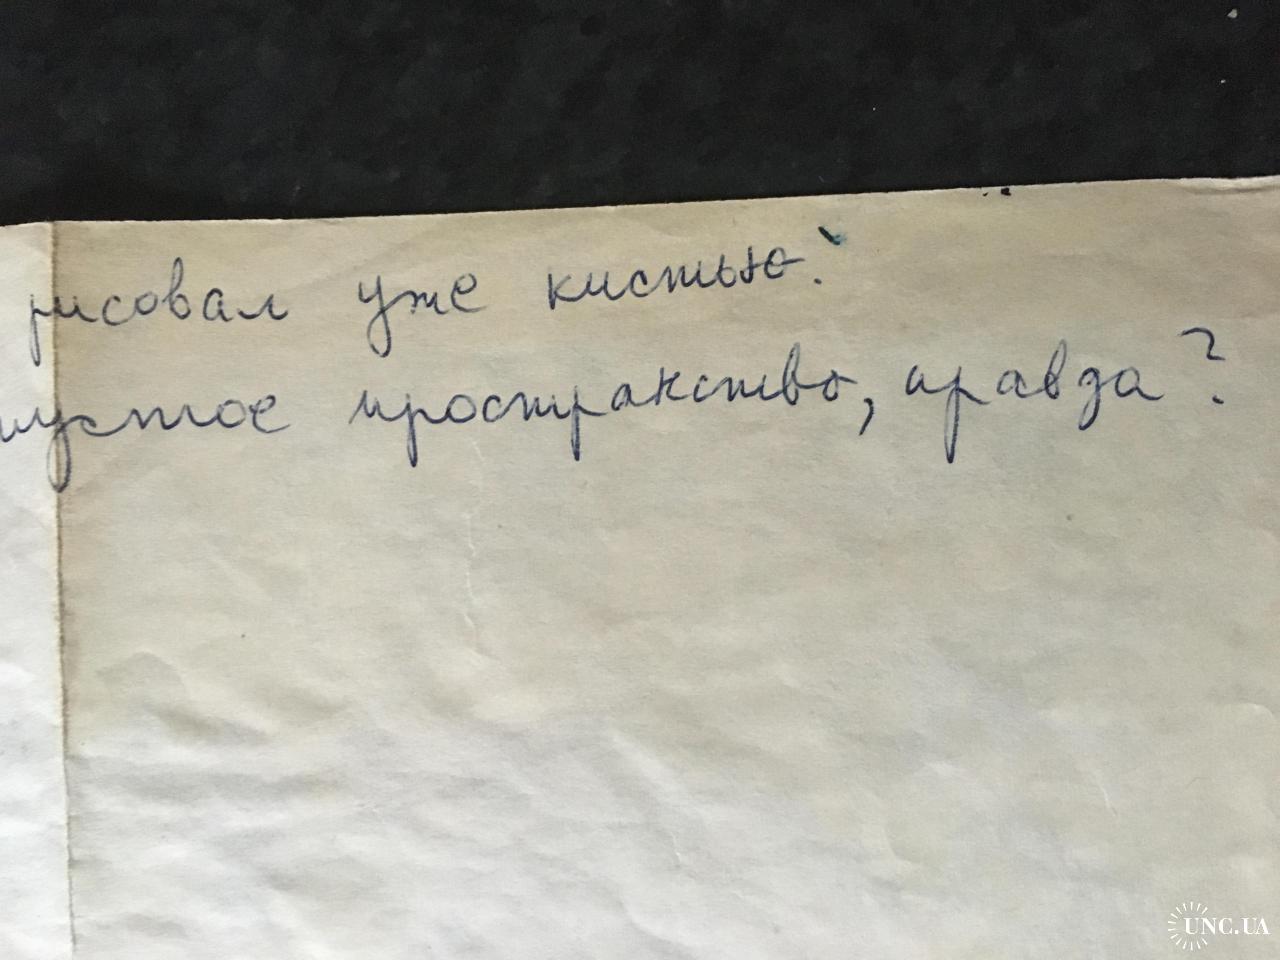 рисовал уже кистью.
пустое пространство, правда?
UNC.UA